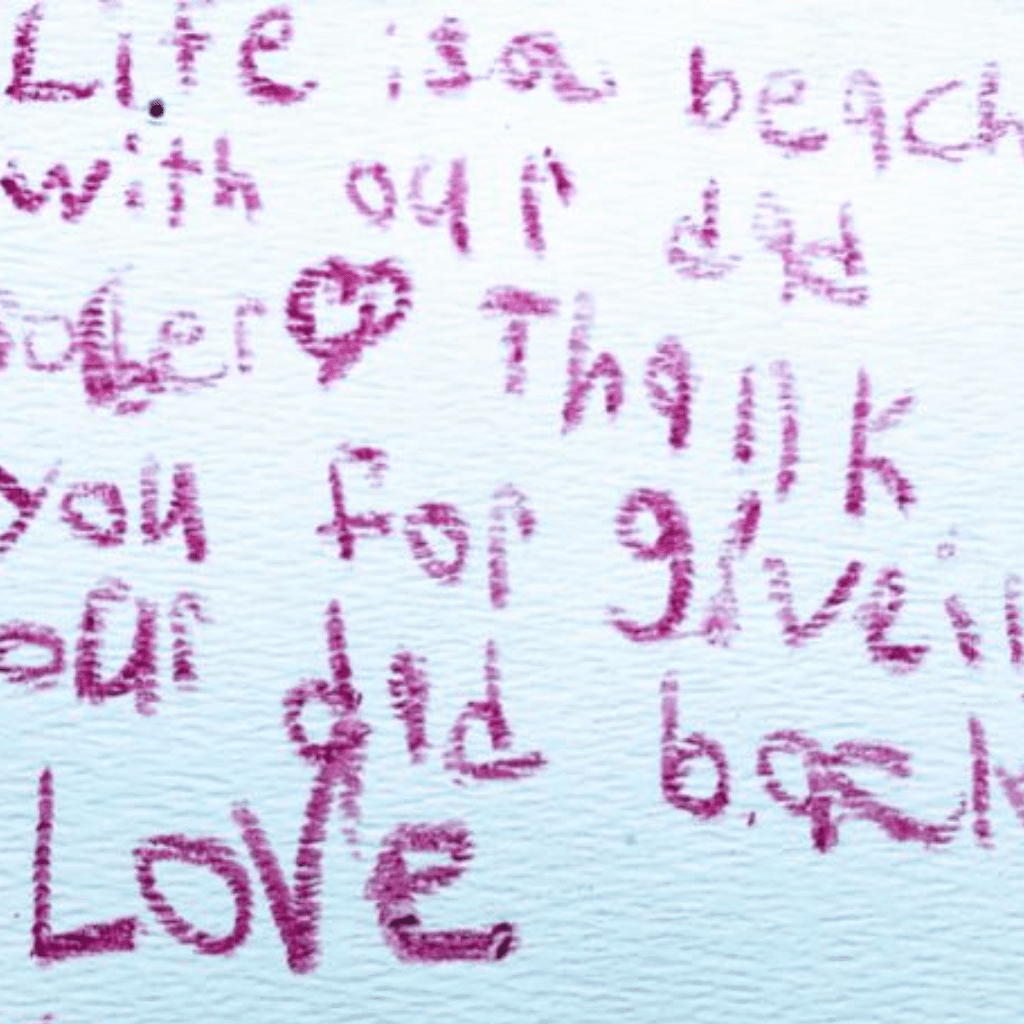 Life is a beach
with our dad
Thank
you for givein
our dad back
Love